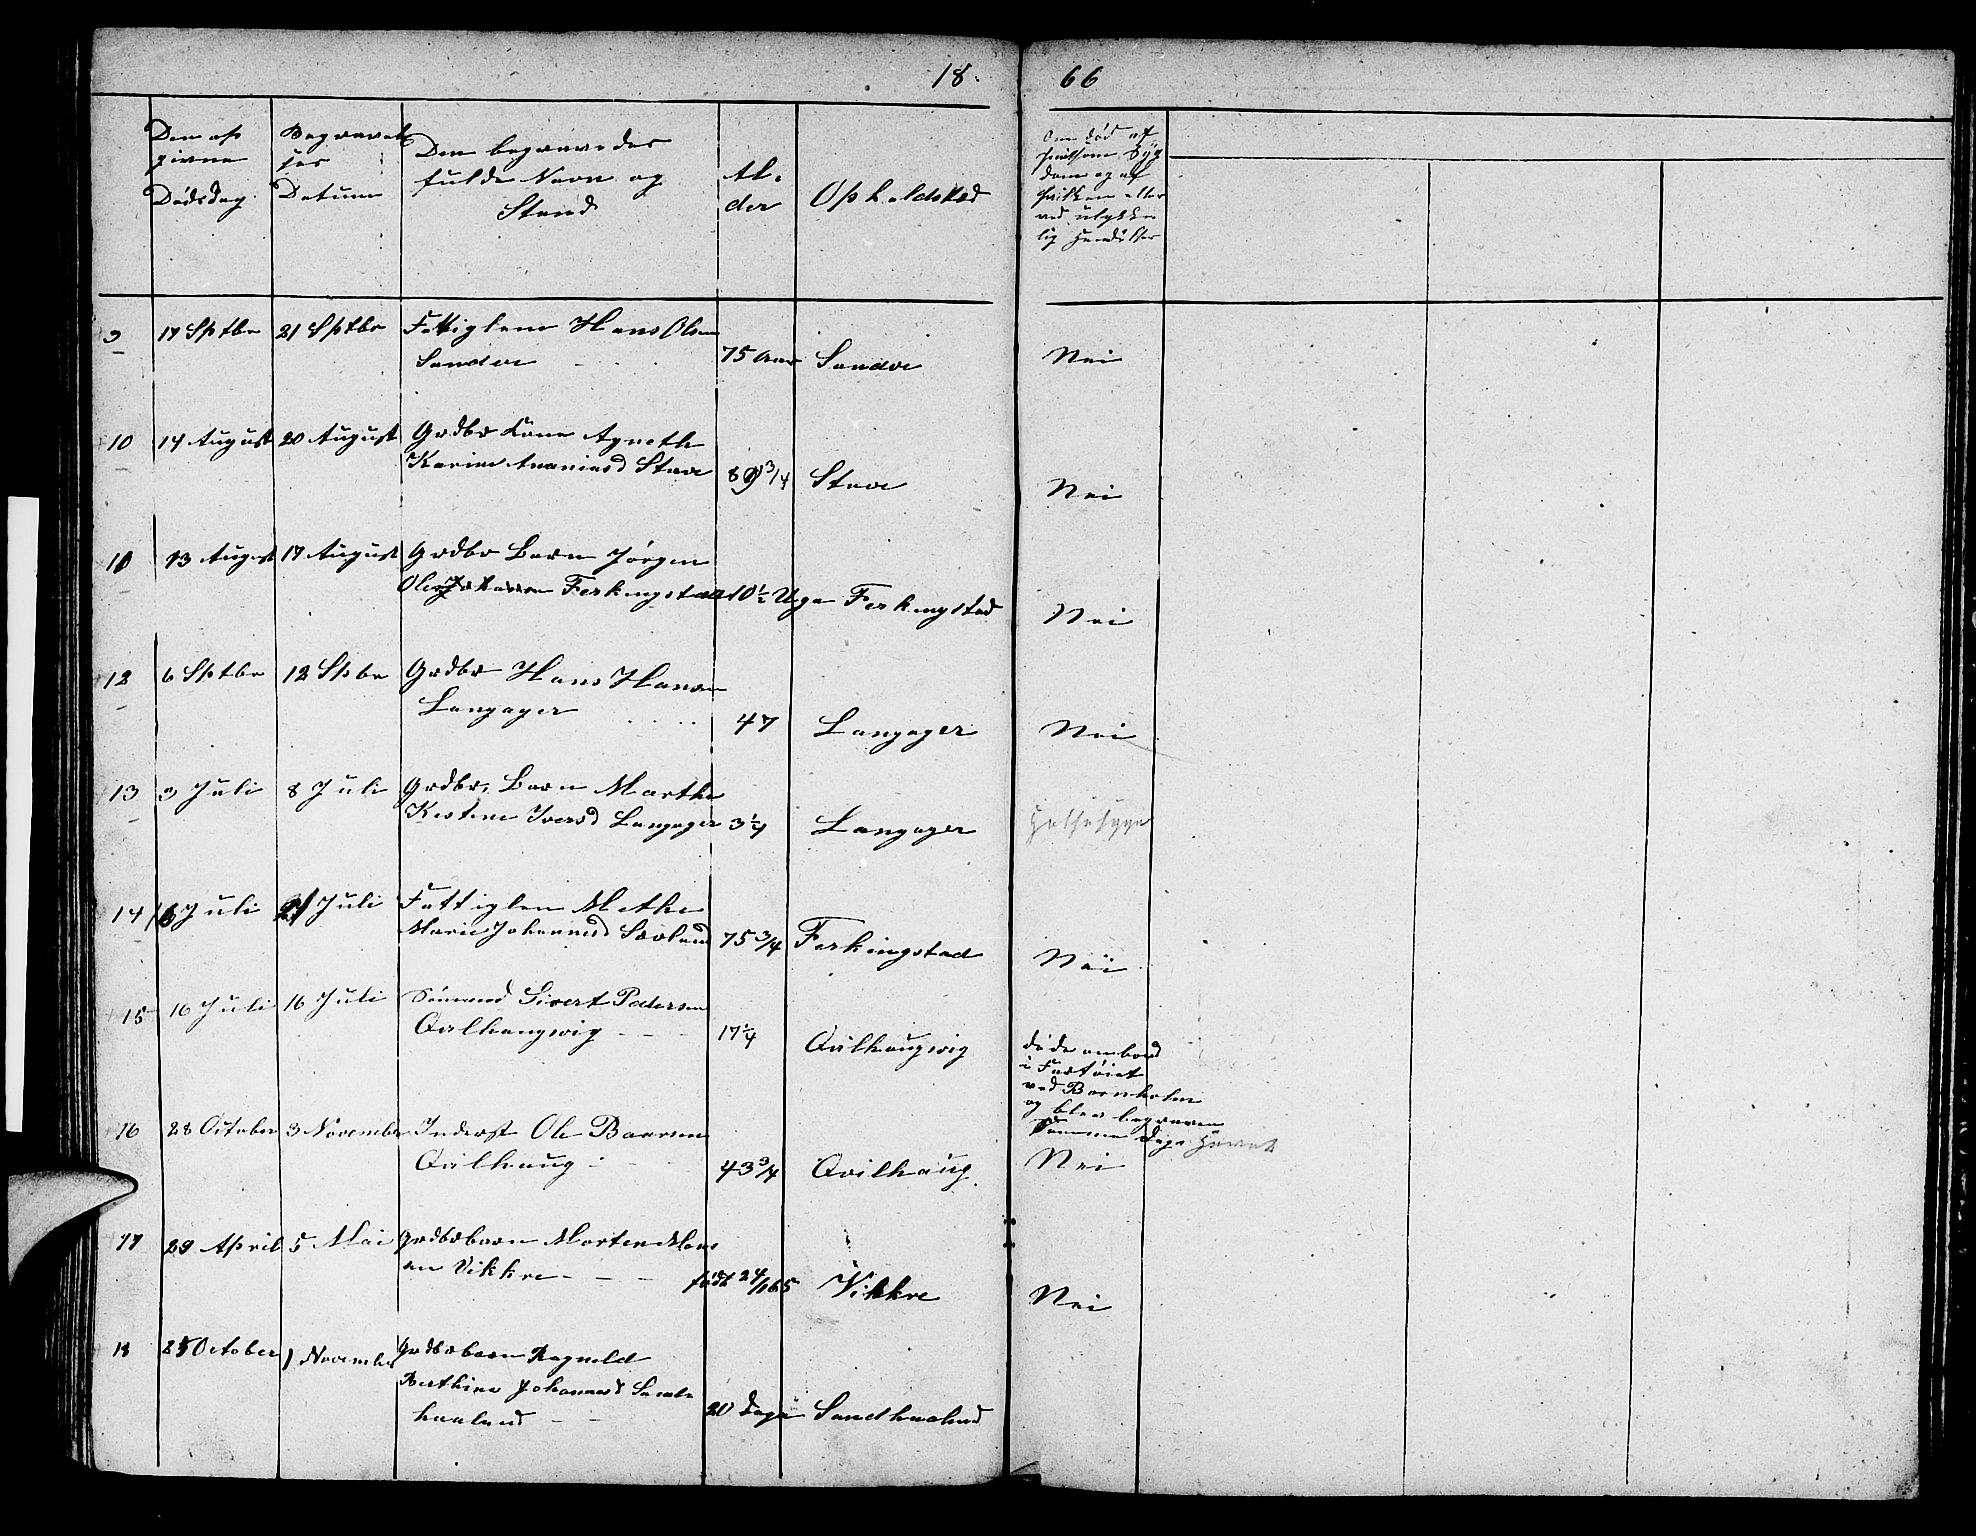 18. 66
Den op
givne
Dødsdag
Begravel
ses
Datum
Den begravedes
fulde Navn og
Stand
Al-
der
Opholdsted
Om død af
smitsom Syg
dom og af
hvilken eller
ved ulykke
lig Hændelse
9 17 Sptbr 21 Sptbr Fattiglem Hans Olsen
Sandve 75 Aar Sandve Nei
10 14 August 20 August Grdbr Kone Agnethe
Karine Ananiasd Stave 89 3/4 Stave Nei
11 13 August 17 August Grdbr Barn Jørgen
Olai Ferkingstad 10 1/2 Uge Ferkingstad Nei
12 6 Sptbr 12 Spbr Grdbr Hans Hansen
Langager 47 Langager Nei
13 3 Juli 8 Juli Grdbr. Barn Marthe
Kestine Iversd Langager 3 1/4 Langager
14 16 Juli 21 Juli Fattiglem Methe
Marie Johannesd Sævland 75 3/4 Ferkingstad Nei
15 16 Juli 16 Juli Sømand Sivert Pedersen
Qvilhaugwig 17 1/4 Qvilhaugwig døde ombord
i Fartøiet
ved Bornholm
og blev begraven
Samme Dag i Havet
16 28 October 3 November Inderst Ole Baarsen
Qvilhaug 43 3/4 Qvilhaug Nei
17 29 April 5 Mai Grdbrbarn Morten Mons
en Vikkre født 24/1 65 Vikkre Nei
18 25 October 1 November Grdbrbarn Ragneld
Berthine Johannesd Sand
haaland 20 Dage Sandhaaland